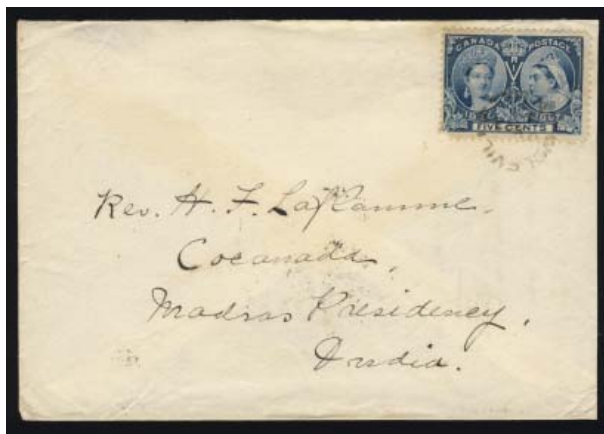 CANADA POSTAGE
FIVE CENTS
Rev. H. F. LaFlamme.
Cocanada,
Madras Presidency,
India.